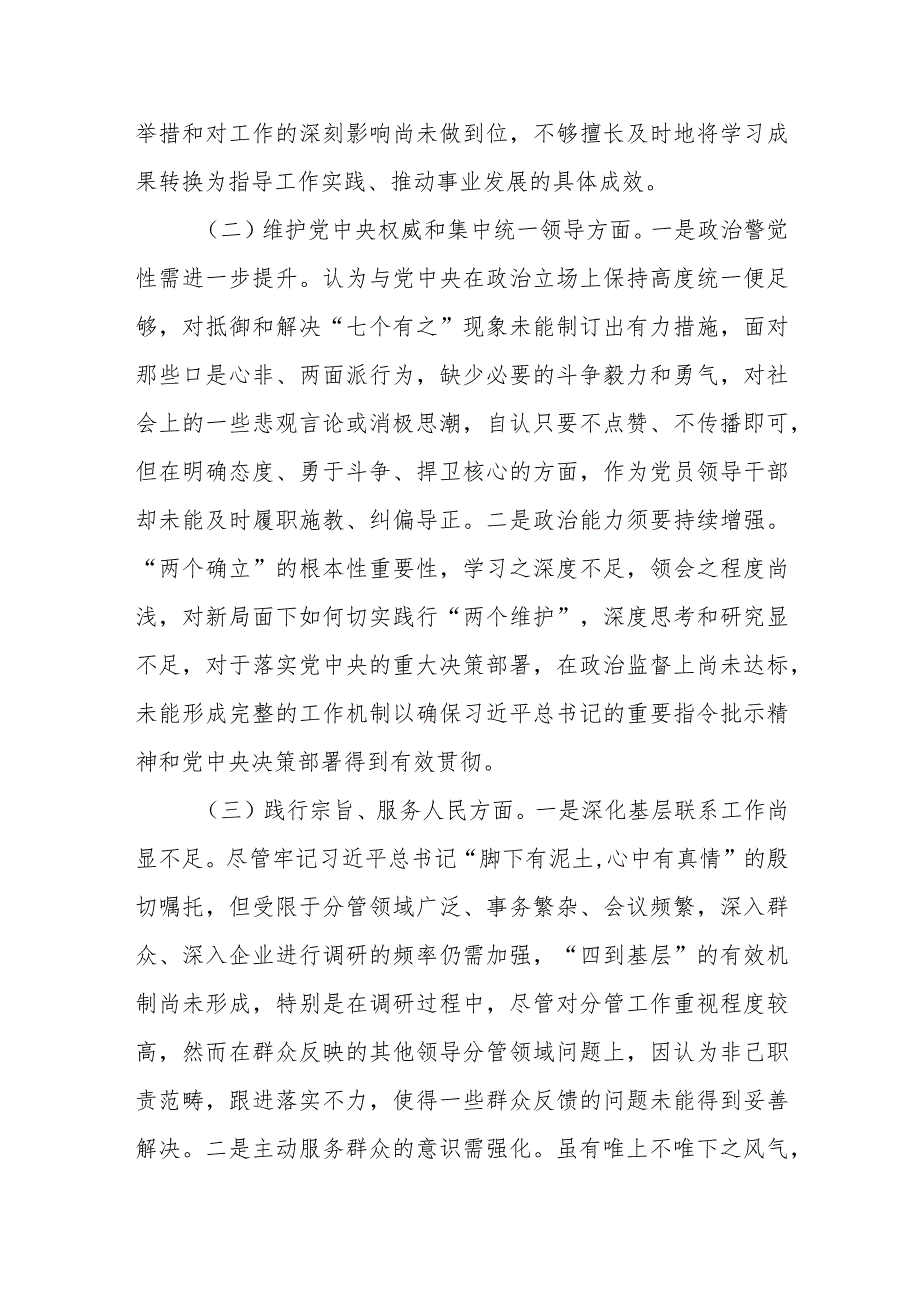 举措和对工作的深刻影响尚未做到位，不够擅长及时地将学习成
果转换为指导工作实践、推动事业发展的具体成效。
（二）维护党中央权威和集中统一领导方面。一是政治警觉
性需进一步提升。认为与党中央在政治立场上保持高度统一便足
够，对抵御和解决“七个有之”现象未能制订出有力措施，面对
那些口是心非、两面派行为，缺少必要的斗争毅力和勇气，对社
会上的一些悲观言论或消极思潮，自认只要不点赞、不传播即可，
但在明确态度、勇于斗争、捍卫核心的方面，作为党员领导干部
却未能及时履职施教、纠偏导正。二是政治能力须要持续增强。
“两个确立”的根本性重要性，学习之深度不足，领会之程度尚
浅，对新局面下如何切实践行“两个维护”，深度思考和研究显
不足，对于落实党中央的重大决策部署，在政治监督上尚未达标，
未能形成完整的工作机制以确保习近平总书记的重要指令批示精
神和党中央决策部署得到有效贯彻。
（三）践行宗旨、服务人民方面。一是深化基层联系工作尚
显不足。尽管牢记习近平总书记“脚下有泥土,心中有真情”的殷
切嘱托，但受限于分管领域广泛、事务繁杂、会议频繁，深入群
众、深入企业进行调研的频率仍需加强，“四到基层”的有效机
制尚未形成，特别是在调研过程中，尽管对分管工作重视程度较
高，然而在群众反映的其他领导分管领域问题上，因认为非己职
责范畴，跟进落实不力，使得一些群众反馈的问题未能得到妥善
解决。二是主动服务群众的意识需强化。虽有唯上不唯下之风气，